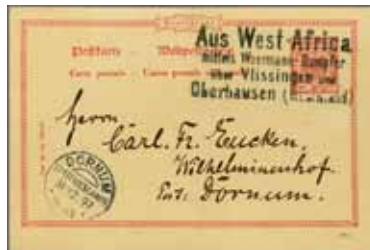 Postkarte - Weltpost
Carte postale - Union postale
Aus West-Africa
mittels Woermann-Dampfer
über Vlissingen und
Oberhausen (Rheinland)
Herrn
Carl. Fr. Eucken.
Wilhelminenhof.
Dornum.
DORNUM